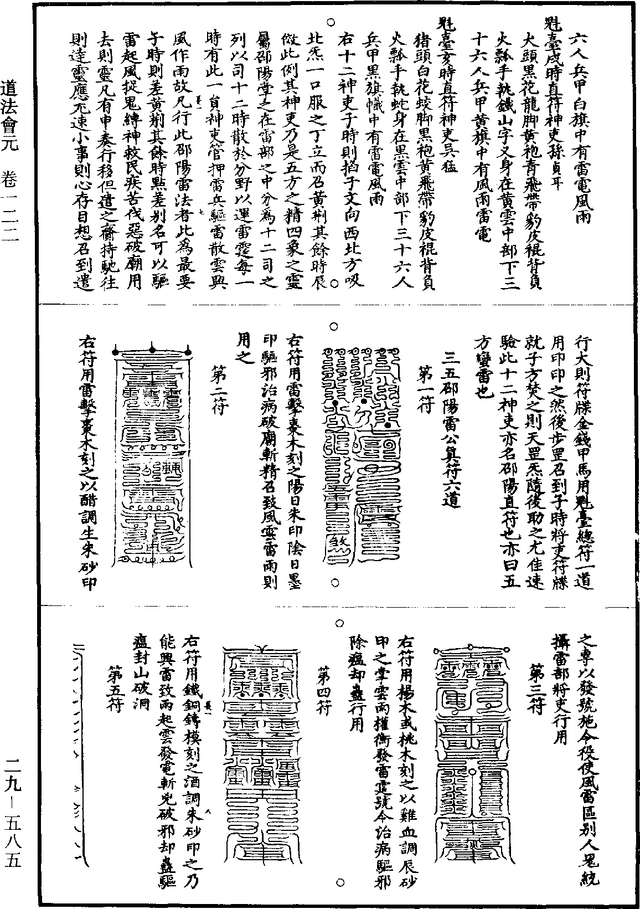 六人兵甲白旗中有雷電風雨
魁臺戌時直符神吏孫貟耳
火頭黑花龍脚黃袍青飛帶豹皮裩背負
火瓢手執鐵山字叉身在黃雲中部下三
十六人兵甲黃旗中有風雨雷電
魁臺亥時直符神吏吳猛
猪頭白花蛟脚黑袍黃飛帶豹皮裩背負
火瓢手執蛇身在黑雲中部下三十六人
兵甲黑旗幟中有雷電風雨
右十二神吏子時則掐子文向西北方吸
北炁一口服之丁立而召黃荆其餘時辰
倣此例其神吏乃是五方之精四象之靈
屬邵陽堂之在雷部之中分為十二司之
列以司十二時散於分野以運雷霆每一
時有此一員神吏管押雷兵驅雷散雲興
風作雨故凡行此邵陽雷法者此為最要
子時則差黃荆其餘時點差別名可以驅
雷起風從鬼縛神救民疾苦伐惡破廟用
去則靈凡有申奏行移但遣之齎持馳往
則達靈應尤速小事則心存目想召到遣
行大則符牒金錢甲馬用魁臺總符一道
用印印之然後步罡召到子時將吏符牒
就子方焚之則天罡炁隨後助之尤佳速
驗此十二神吏亦名邵陽直符也亦曰五
方蠻雷也
三五邵陽雷公真符六道
第一符
右符用雷擊棗木刻之陽日朱印陰日墨
印驅邪治病破廟斬精召致風雲雷雨則
用之
第二符
右符用雷擊棗木刻之以醋調生朱砂印
之專以發號施令役使風雷區別人鬼統
攝雷部將吏行用
第三符
右符用楊木或桃木刻之以雞血調辰砂
印之掌雲雨權衡發雷霆號令治病驅邪
除瘟却蠱行用
第四符
右符用鐵銅鑄模刻之酒調朱砂印之乃
能興雷致雨起雲發電斬鬼破邪却蠱驅
瘟封山破洞
第五符
道法會元 卷一二二
二九－五八五